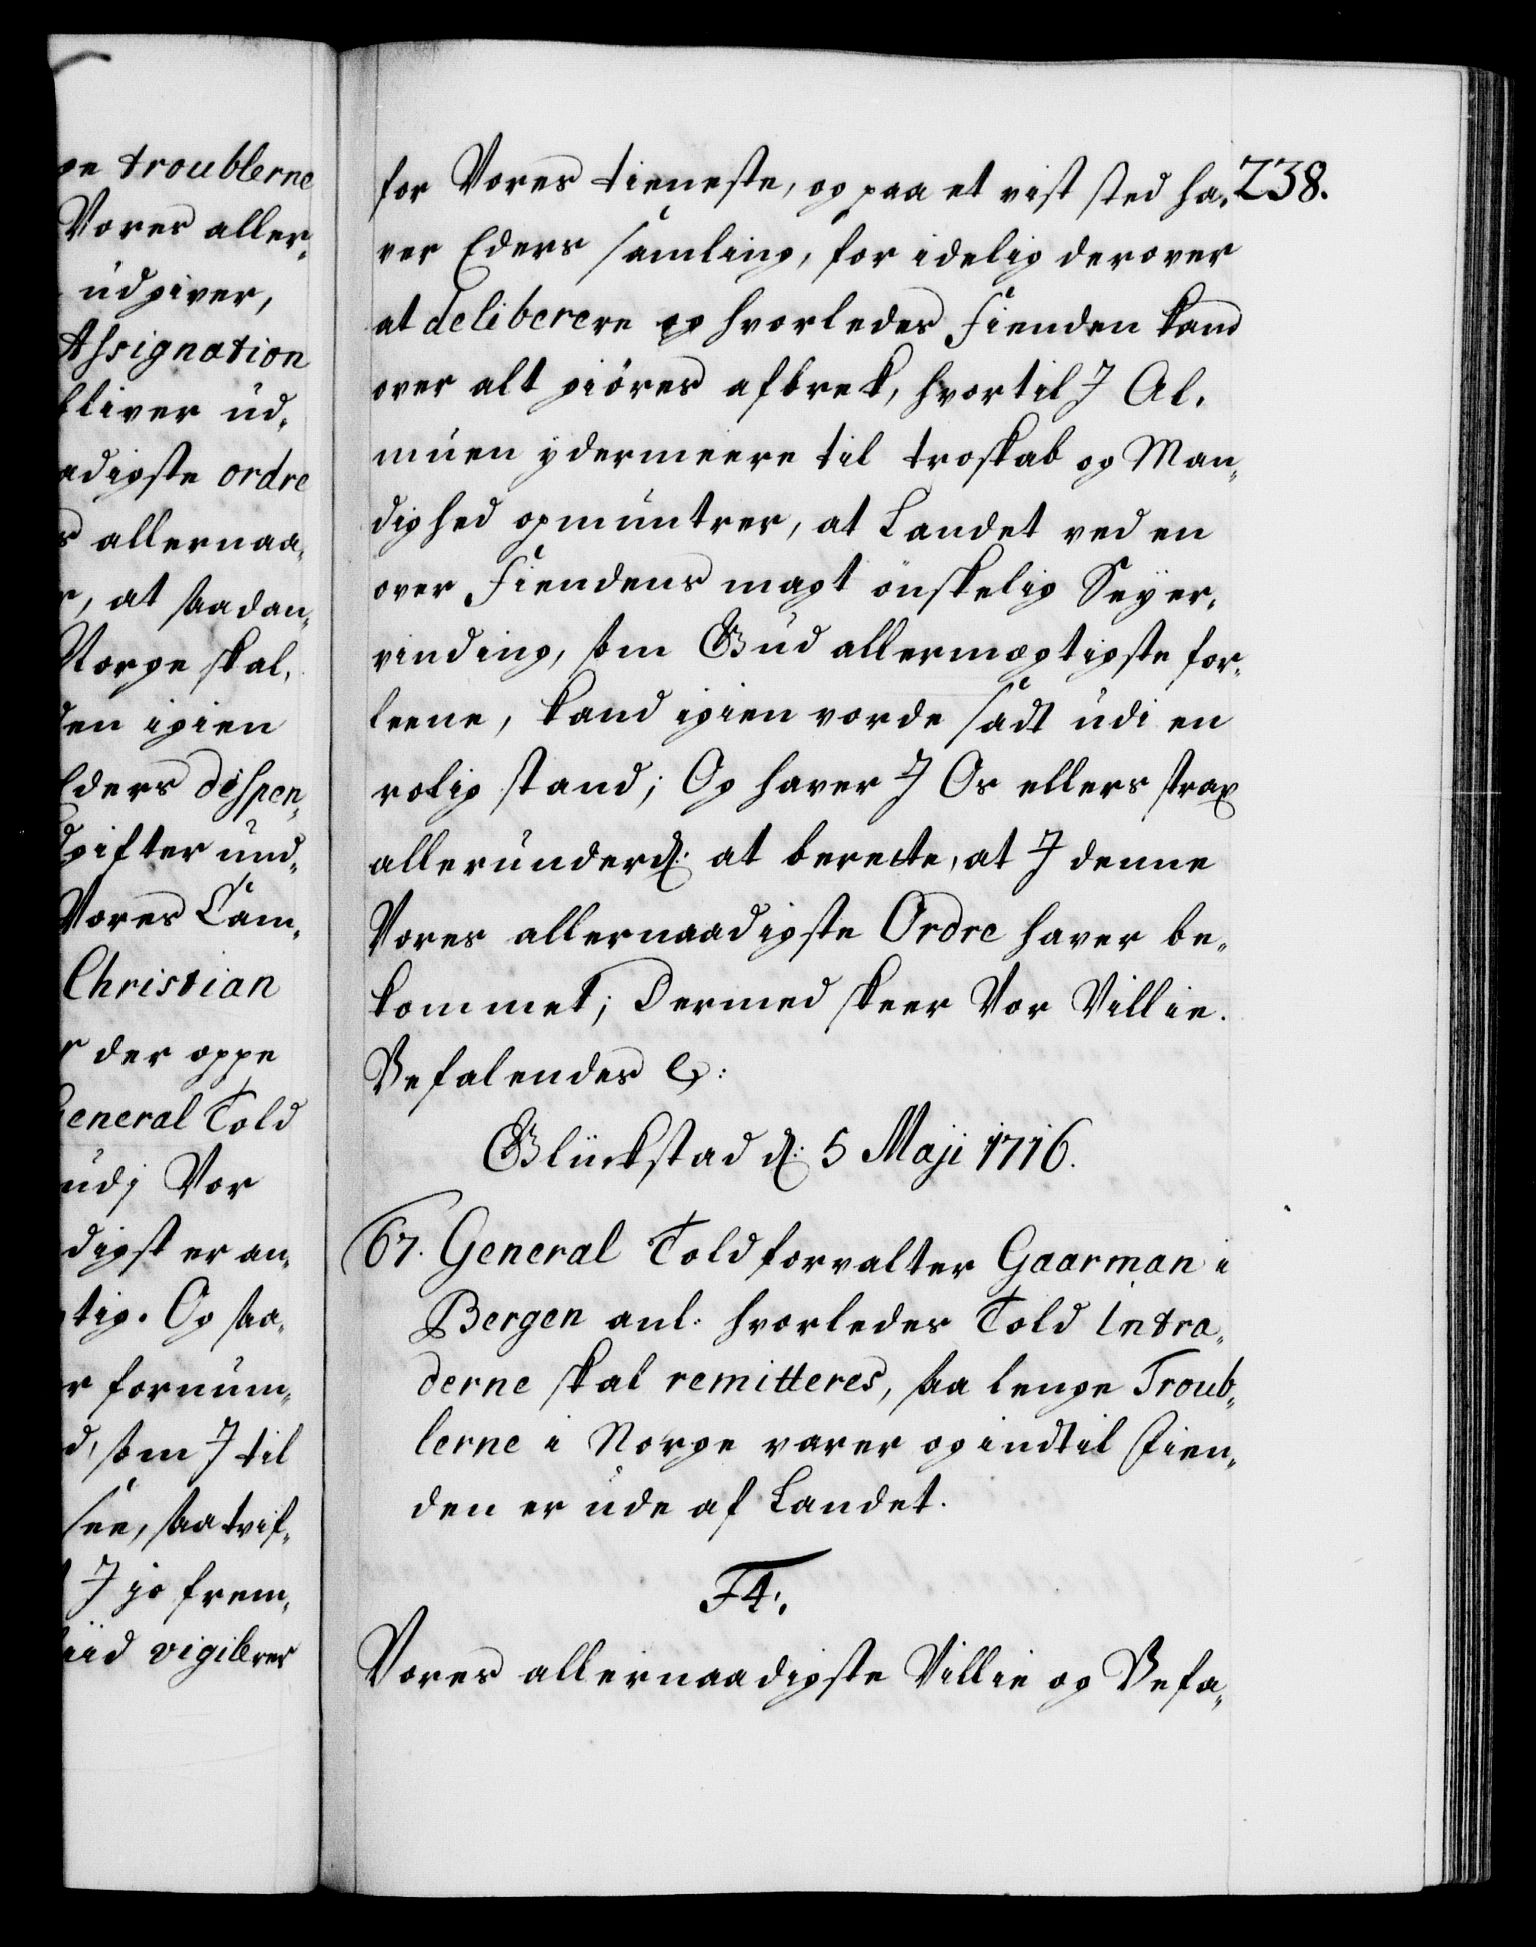 ge troublerne
Vores aller„
udgiver,
Assignation
bliver ud„
adigste ordre
s allernaa„
r, at saadan„
Norge skal„
den igien
Eders dispen„
dgifter und„
Vores Cam„
Christian
r der oppe
General Told
udj Vor
digst er an„
gtig. Og saa„
r fornum„
d, som J til
see, saa vif„
J jo frem„
liid vigilerer
238.
for Vores tieneste, og paa et vist sted ha„
ver Eders samling, for idelig derover
at deliberere og hvorledes Fienden kand
over alt giöres afbrek, hvortil J Al„
muen ydermeere til troskab og Man„
dighed opmuntrer, at Landet ved en
over Fiendens magt önskelig Seyer„
vinding, som Gud allermægtigste for„
leene, kand igien vorde sadt udi en
rolig stand; Og haver J Os ellers strax
allerunderd: at berette, at J denne
Vores allernaadigste Ordre haver be„
kommet; Dermed skeer Vor Villie.
Befalendes &:
Glückstad d: 5 Maji 1716.
67. General Toldforvalter Gaarman i
Bergen anl: hvorledes Told Intra„
derne skal remitteres, saa lenge Troub„
lerne i Norge varer og indtil Fien„
den er ude af Landet.
F4:
Vores allernaadigste Villie og Befa„